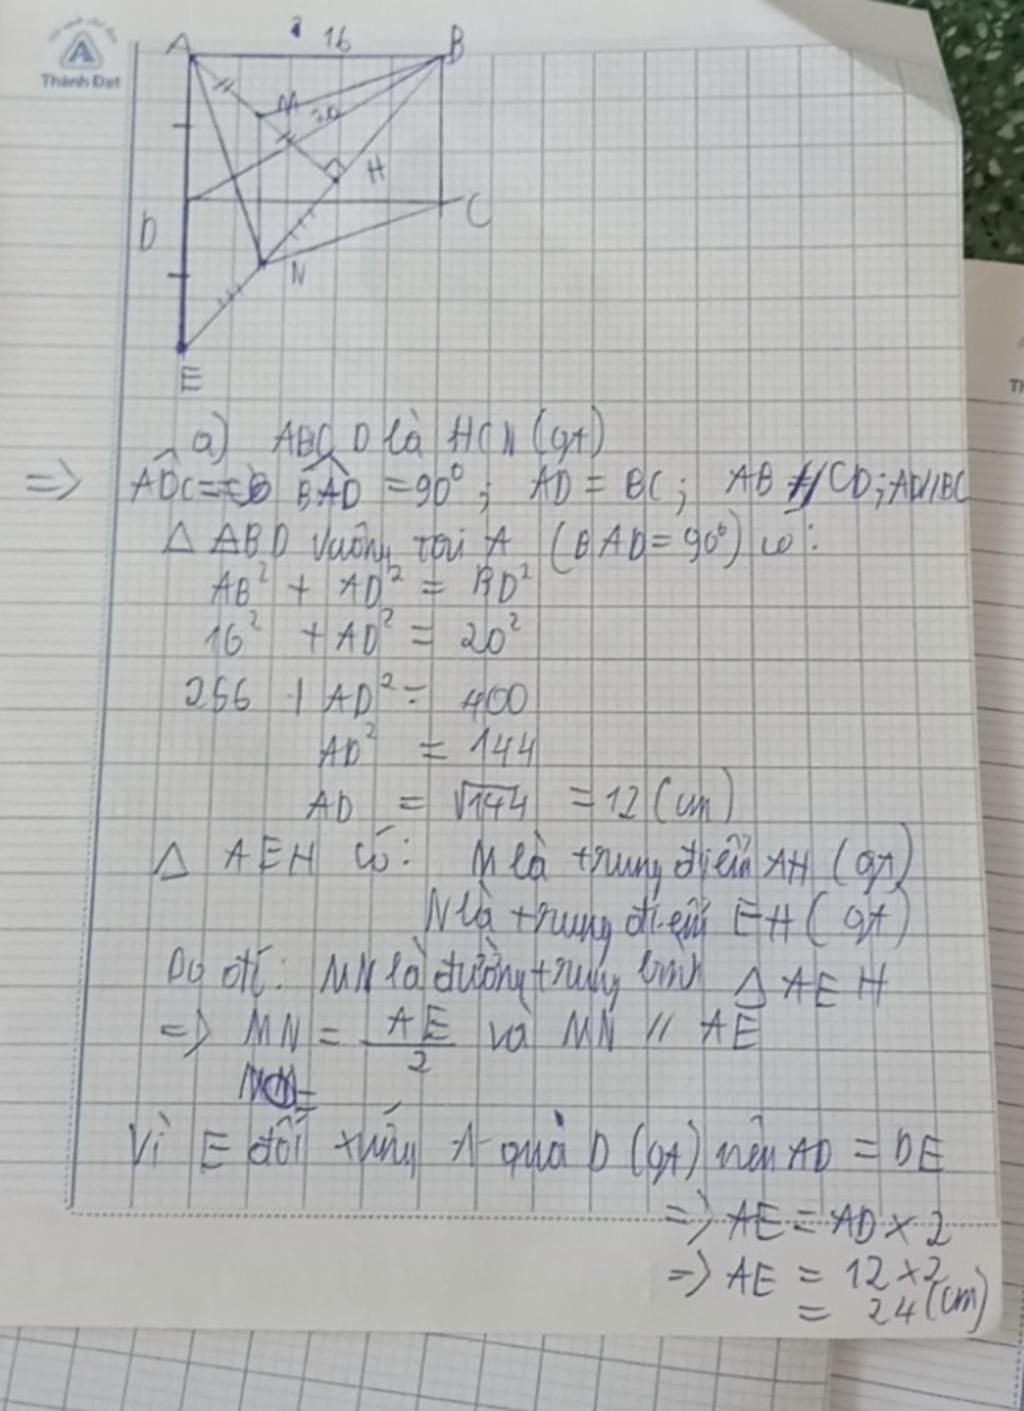 A
Thành Đạt
A 16 B
M 20
H
D C
N
E
a) ABCD là HCN (gt)
=> ADC = BAD = 90°; AD = BC; AB // CD; AD//BC
Δ ABD vuông tại A (BAD = 90°) có:
AB² + AD² = BD²
16² + AD² = 20²
256 + AD² = 400
AD² = 144
AD = √144 = 12 (cm)
Δ AEH có: M là trung điểm AH (gt)
N là trung điểm EH (gt)
Do đó: MN là đường trung bình Δ AEH
=> MN = AE/2 và MN // AE
Vì E đối xứng A qua D (gt) nên AD = DE
=> AE = AD × 2
=> AE = 12 × 2
= 24 (cm)